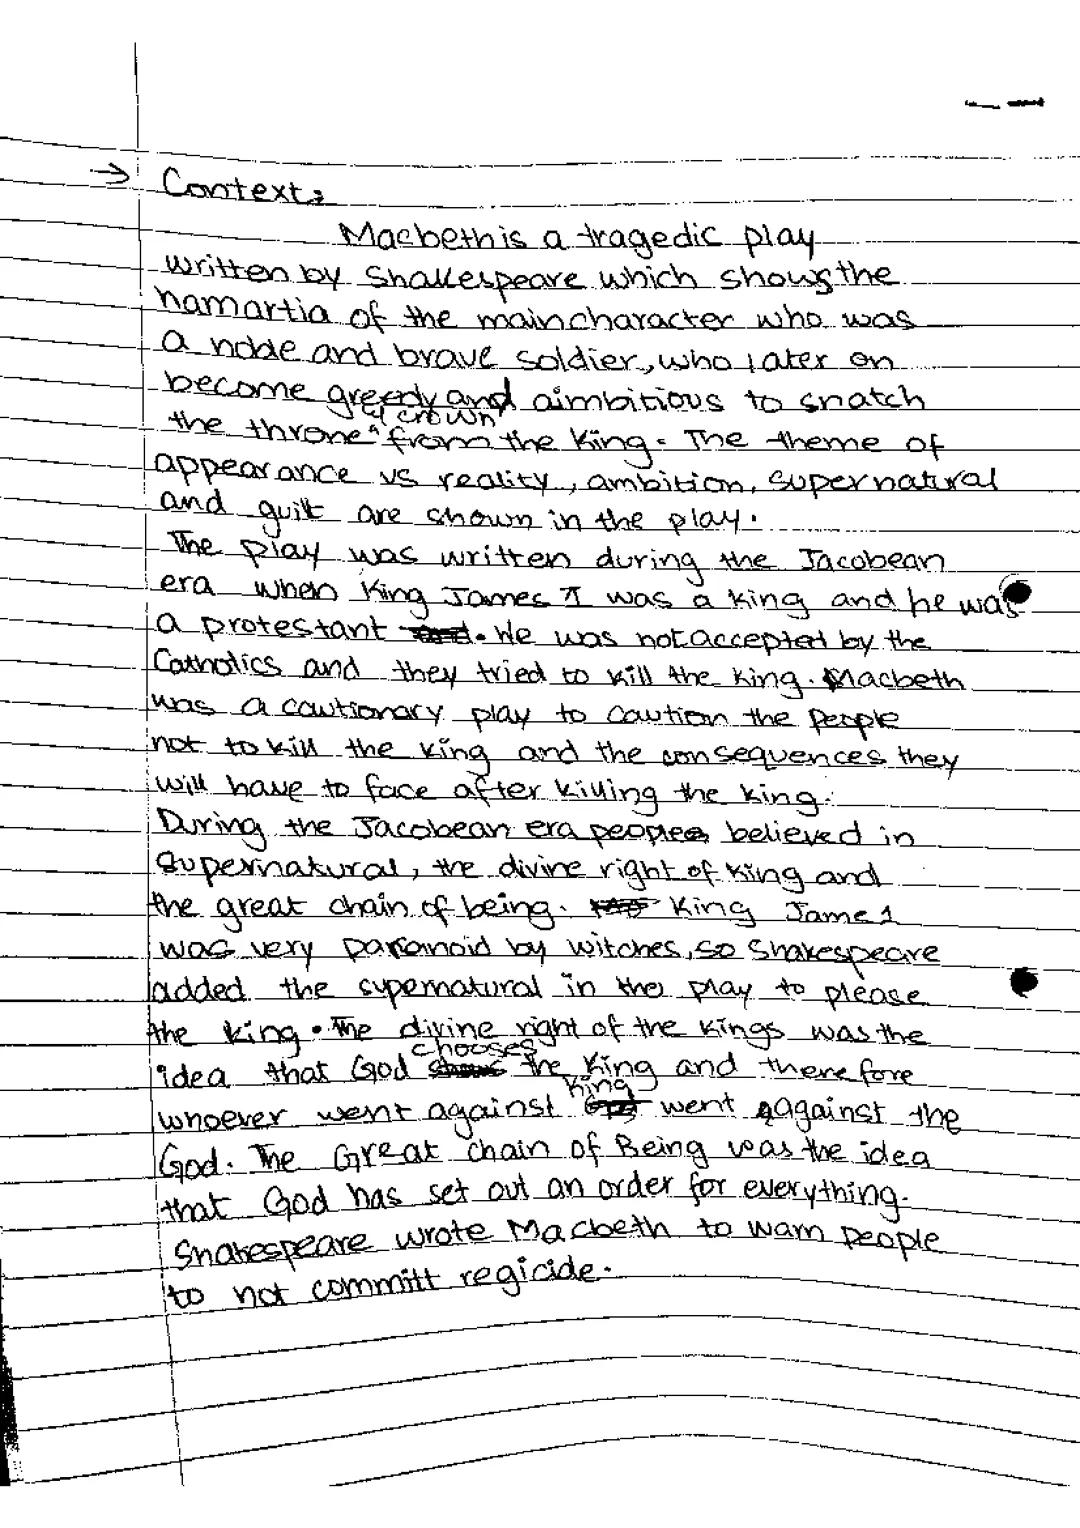 → Context:
Macbeth is a tragedic play
written by Shakespeare which shows the
hamartia of the main character who was
a noble and brave soldier, who later on
become greedy and aimbitious to snatch
& crown
the throne from the King. The theme of
appearance vs reality, ambition, supernatural
and guilt are shown in the play.
The play was written during the Jacobean
era when King James I was a king and he was
a protestant. He was not accepted by the
Catholics and they tried to kill the king. Macbeth
was a cautionary play to caution the people
not to kill the king and the consequences they
will have to face after killing the king.
During the Jacobean era people believed in
Supernatural, the divine right of king and
the great chain of being. King Jame 1
was very paranoid by witches, so Shakespeare
added the supernatural in the play to please
the king. The divine right of the kings was the
chooses
idea that God the King and therefore
King
whoever went against went against the
God. The Great chain of Being was the idea
that God has set out an order for everything.
Shakespeare wrote Macbeth to warn people
to not committ regicide.